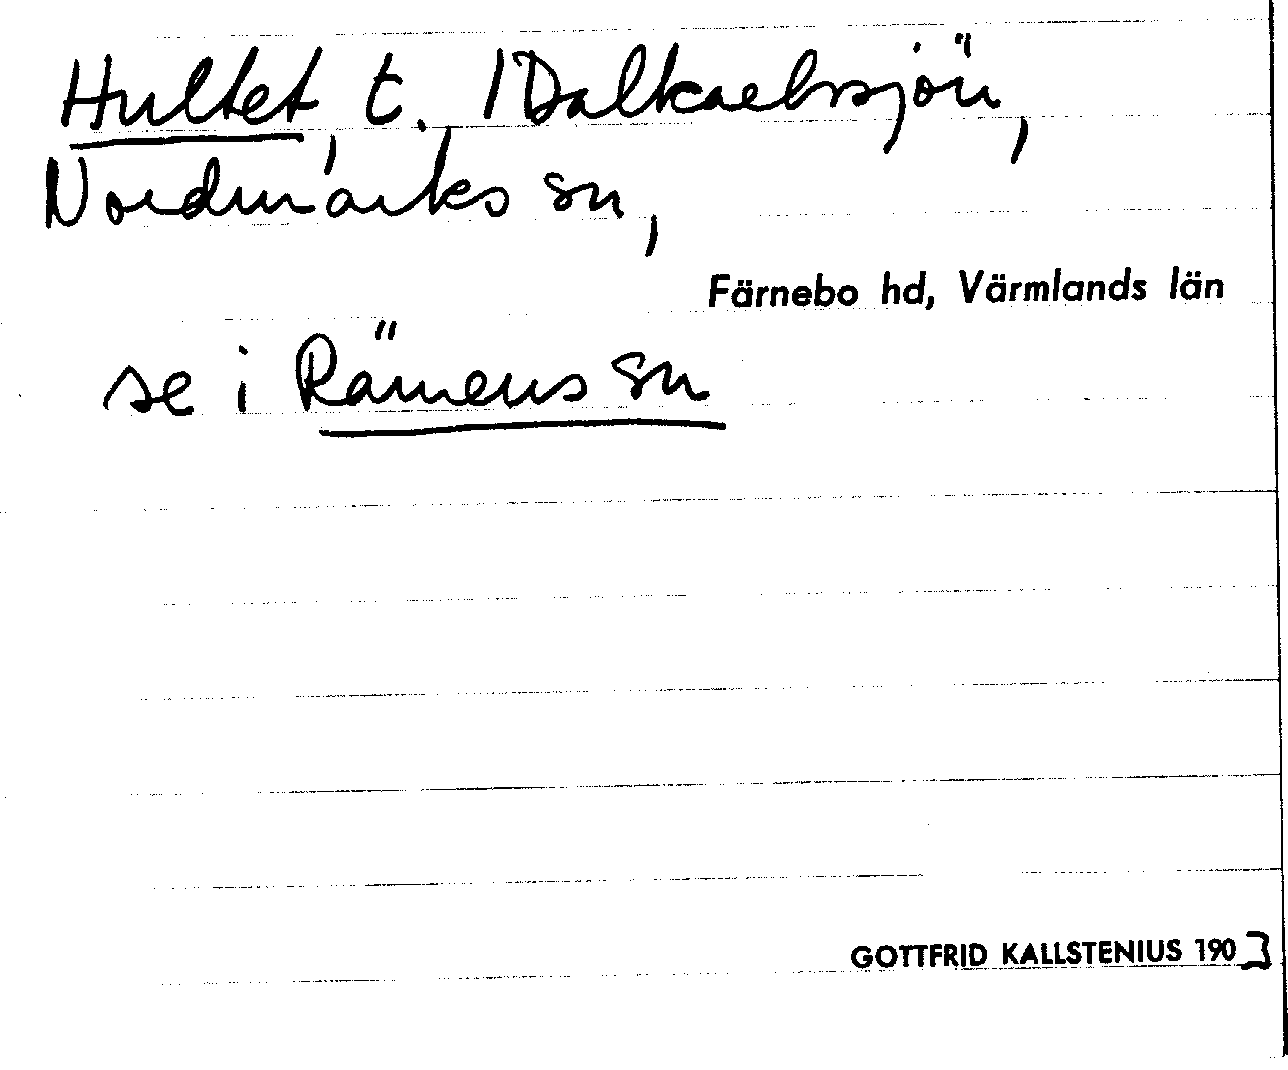 Hultet, t. Dalkarlssjön,
Nordmarks sn,
Färnebo hd, Värmlands län
se i Rämens sn
GOTTFRID KALLSTENIUS 1903